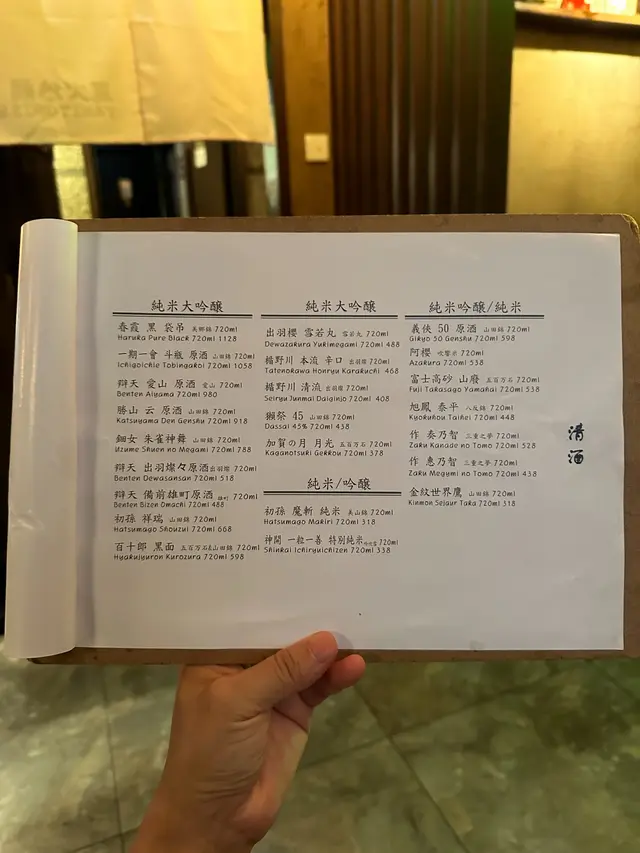 純米大吟醸
春霞 黑 袋吊 美郷錦 720ml
Haruka Pure Black 720ml 1128
一期一會 斗瓶 原酒 山田錦 720ml
Ichigoichie Tobingakoi 720ml 1058
辯天 愛山 原酒 愛山 720ml
Benten Aiyama 720ml 980
勝山 云 原酒 山田錦 720ml
Katsuyama Den Genshu 720ml 918
鈿女 朱雀神舞 山田錦 720ml
Uzume Shuen no Megami 720ml 788
辯天 出羽燦々原酒 出羽燦 720ml
Benten Dewasansan 720ml 518
辯天 備前雄町原酒 雄町 720ml
Benten Bizen Omachi 720ml 488
初孫 祥瑞 山田錦 720ml
Hatsumago Shouzui 720ml 668
百十郎 黑面 五百万石&山田錦 720ml
Hyakujyuron Kurozura 720ml 598
純米大吟醸
出羽櫻 雪若丸 雪若丸 720ml
Dewazakura Yukimegami 720ml 488
楯野川 本流 辛口 出羽燦 720ml
Tatenokawa Honryu Karakuchi 720ml 468
楯野川 清流 出羽燦 720ml
Seiryu Junmai Daiginjo 720ml 408
獺祭 45 山田錦 720ml
Dassai 45% 720ml 438
加賀の月 月光 五百万石 720ml
Kaganotsuki Gekkou 720ml 378
純米/吟醸
初孫 魔斬 純米 美山錦 720ml
Hatsumago Makiri 720ml 318
神開 一粒一善 特別純米 720ml
Shinkai Ichiryuichizen 720ml 338
純米吟醸/純米
義俠 50 原酒 山田錦 720ml
Gikyo 50 Genshu 720ml 598
阿櫻 吟醸米 720ml
Azakura 720ml 538
富士高砂 山廢 五百万石 720ml
Fuji Takasago Yamahai 720ml 538
旭鳳 泰平 八反錦 720ml
Kyokuhou Taihei 720ml 448
作 奏乃智 三重之夢 720ml
Zaku Kanade no Tomo 720ml 528
作 惠乃智 三重之夢 720ml
Zaku Megymi no Tomo 720ml 438
金紋世界鷹 山田錦 720ml
Kinmon Sejaur Taka 720ml 318
清酒